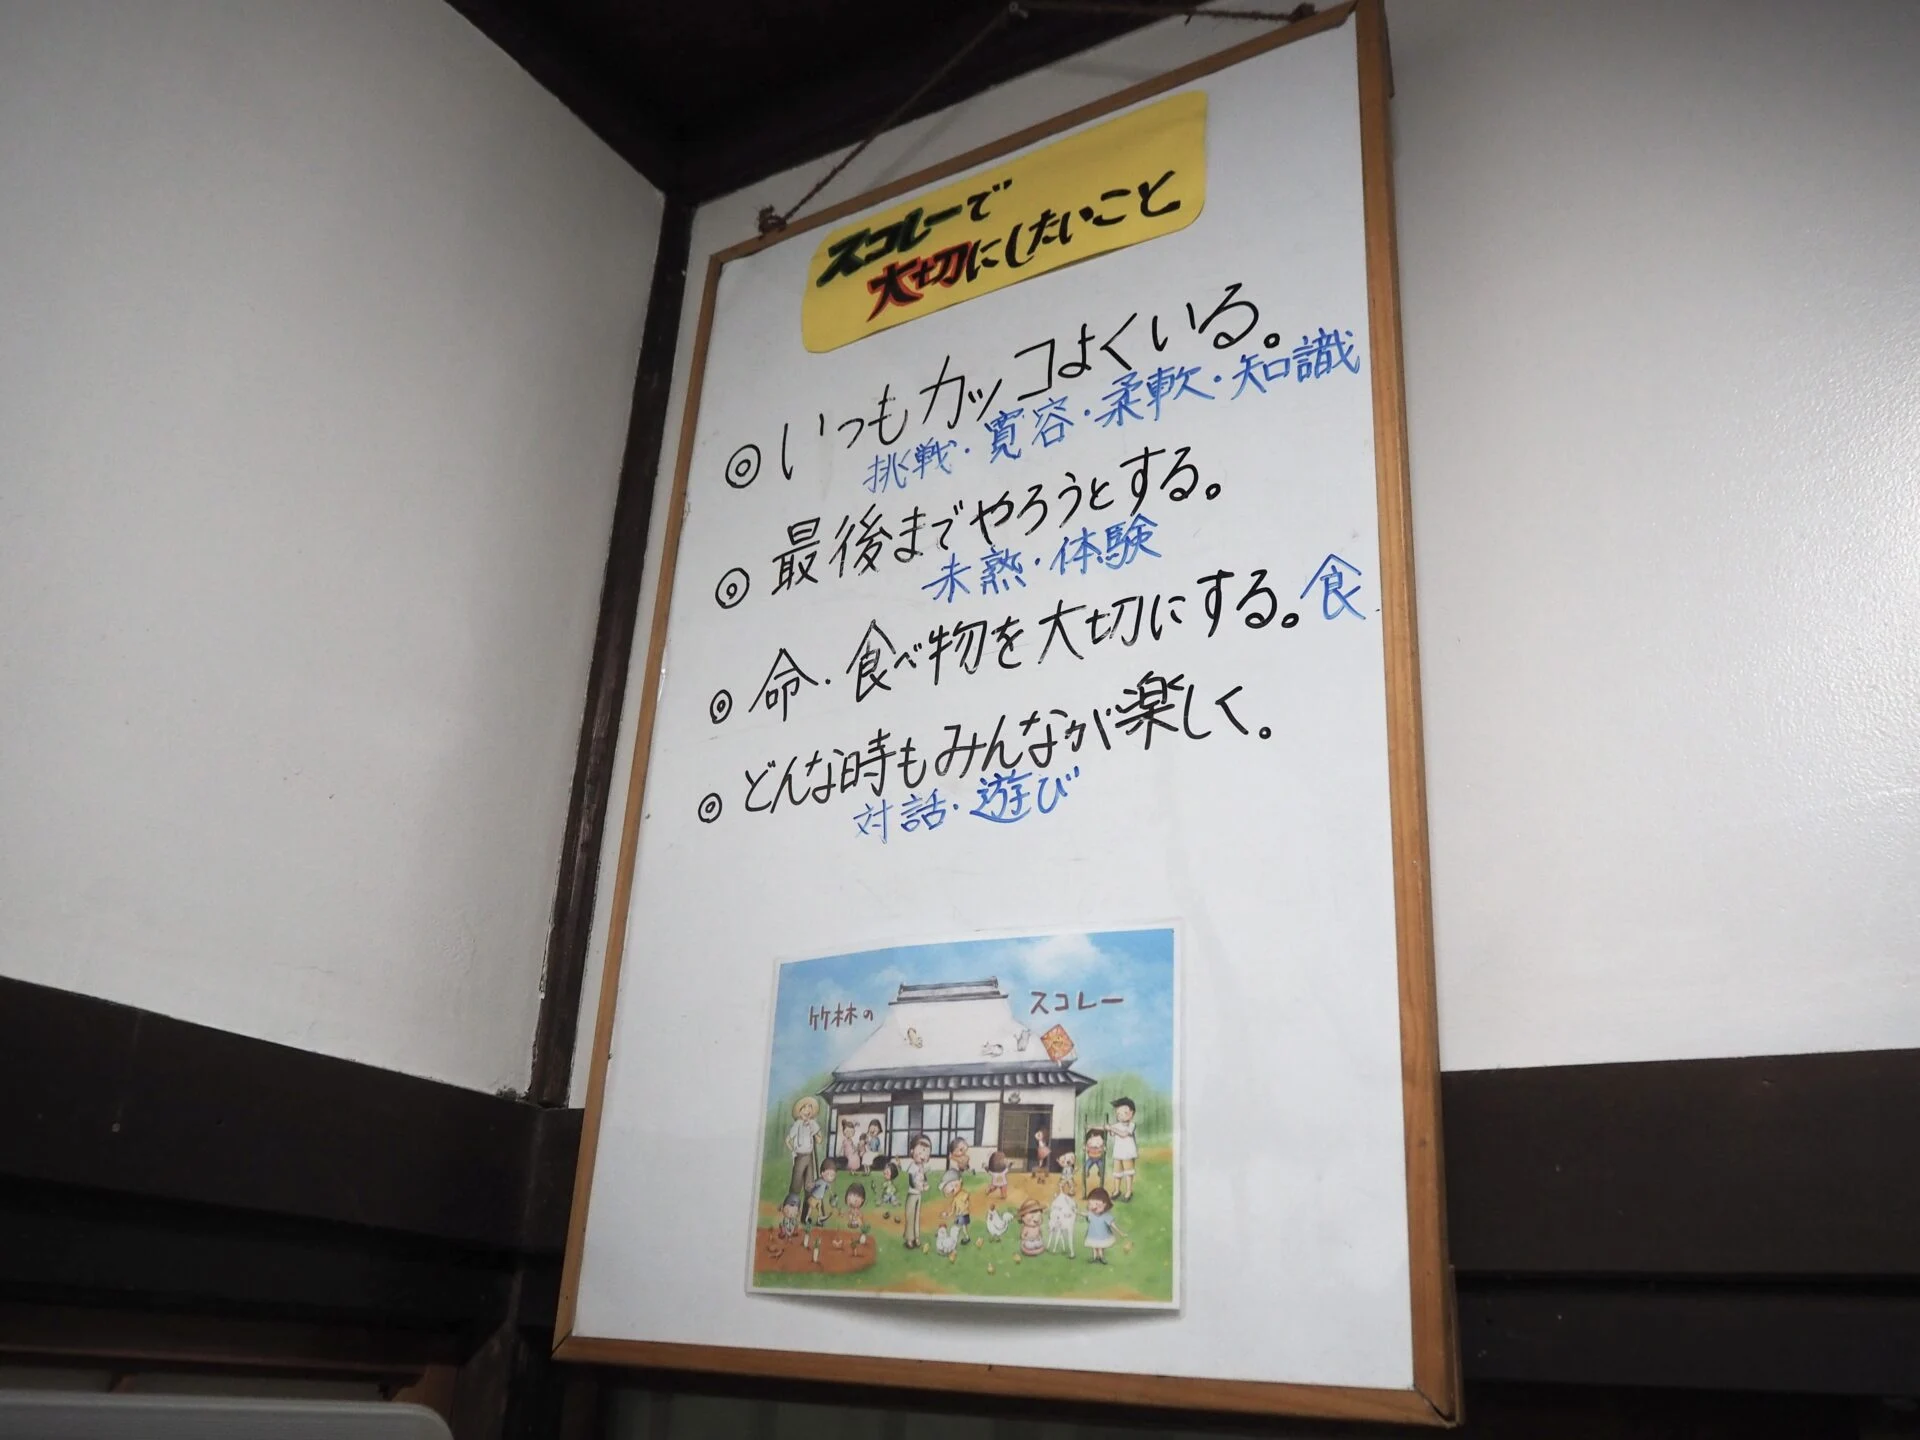 スコレーで
大切にしたいこと
◎いつもカッコよくいる。
挑戦・寛容・柔軟・知識
◎最後までやろうとする。
未熟・体験
◎命・食べ物を大切にする。食
◎どんな時もみんなが楽しく。
対話・遊び
竹林の スコレー